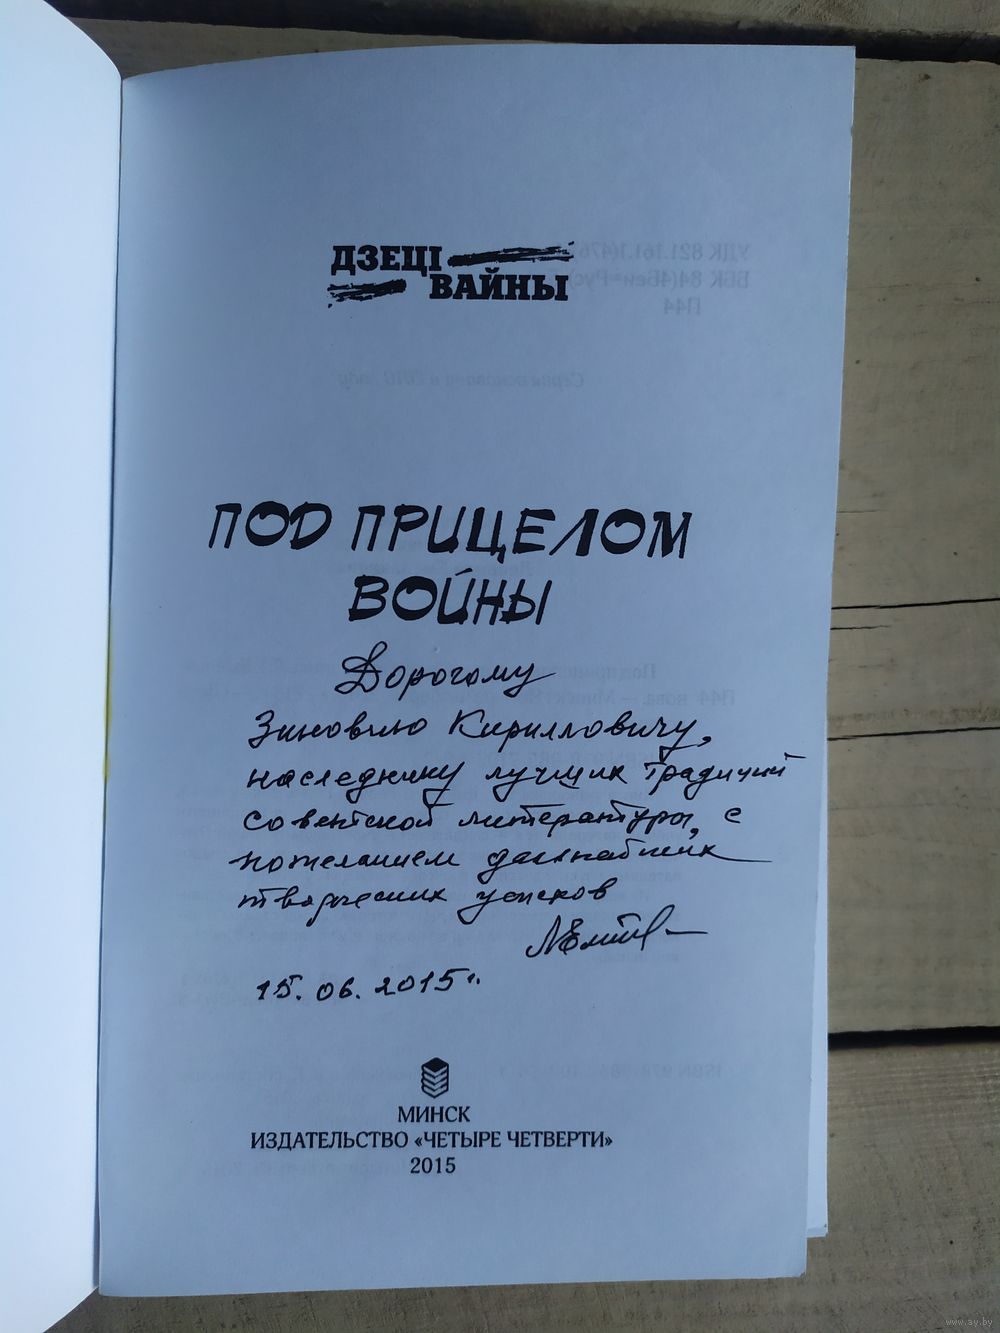 ДЗЕЦІ
ВАЙНЫ
ПОД ПРИЦЕЛОМ
ВОЙНЫ
Дорогому
Зиновию Кирилловичу,
наследнику лучших традиций
советской литературы, с
пожеланием дальнейших
творческих успехов
15.06.2015 г.
МИНСК
ИЗДАТЕЛЬСТВО «ЧЕТЫРЕ ЧЕТВЕРТИ»
2015
www.ay.by